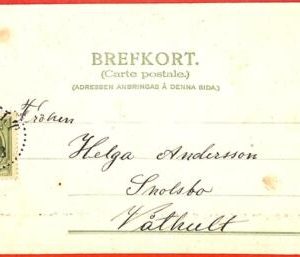 BREFKORT.
(Carte postale.)
(ADRESSEN ANBRINGAS Å DENNA SIDA.)
Fröken
Helga Andersson
Snolsbo
Våthult